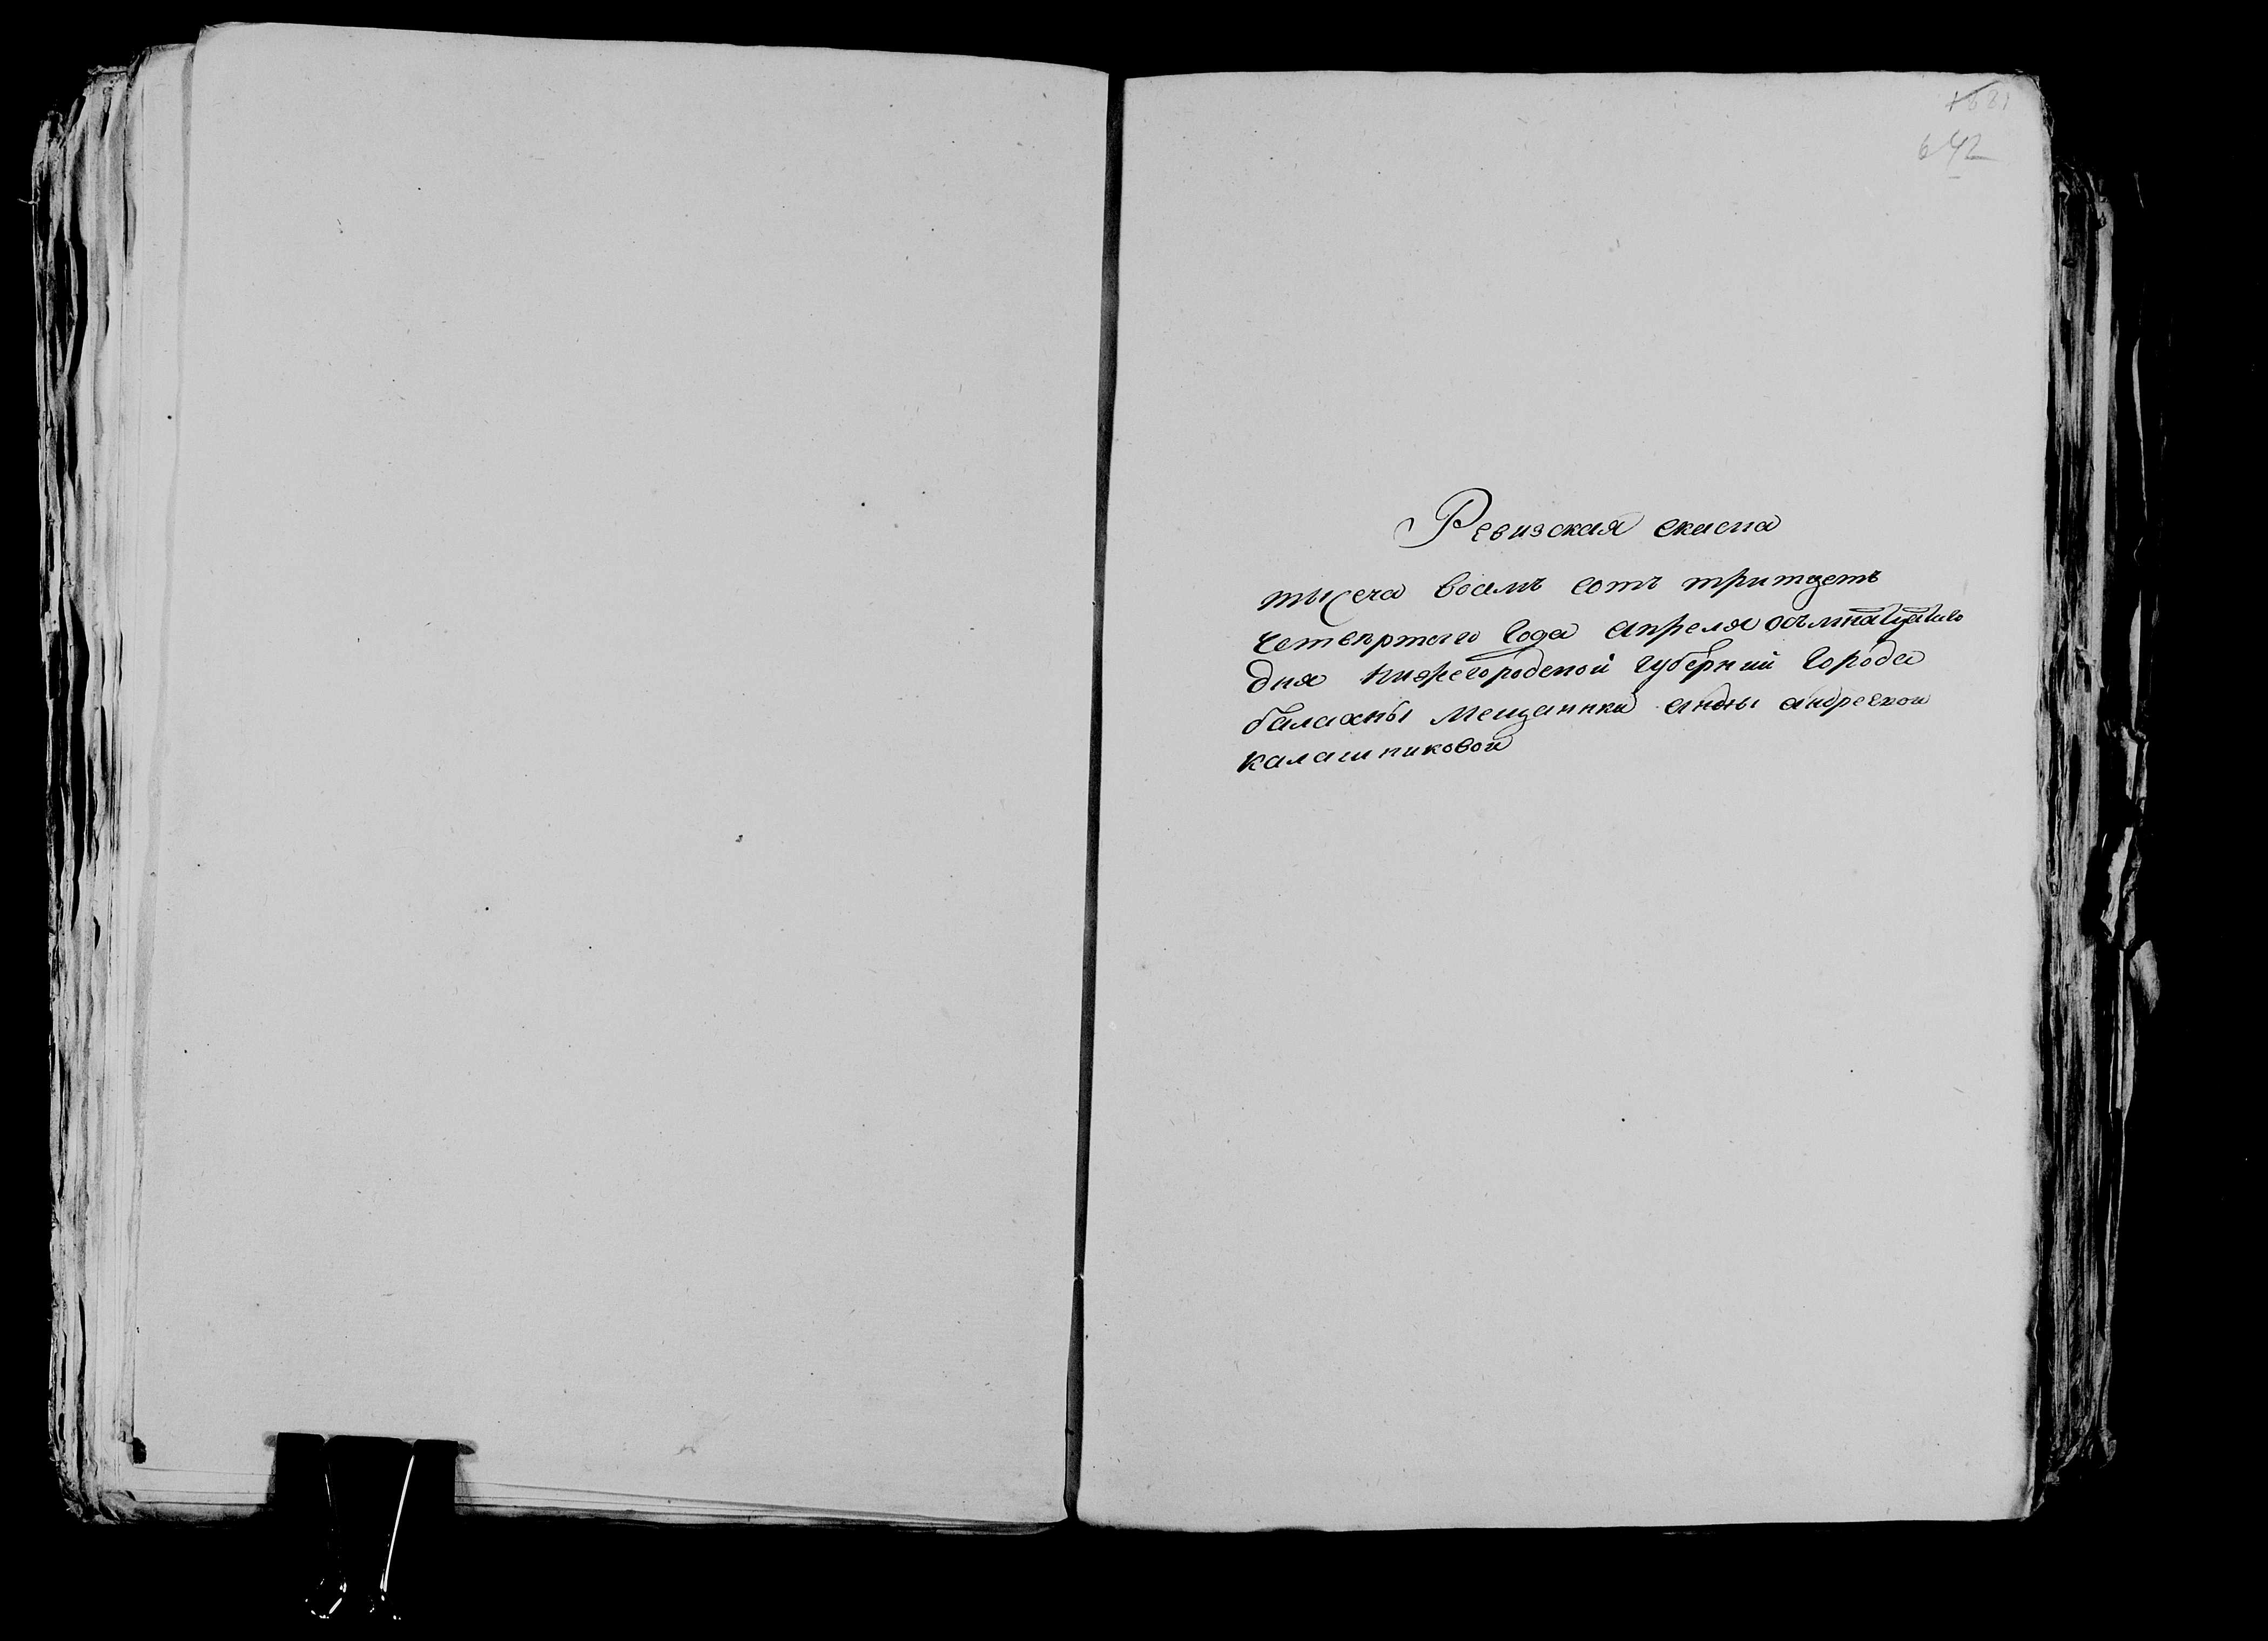 642
Ревизская скаска
тысеча восемъ сотъ тритцеть
четвертого года апреля осьмнатцатого
дня нижегородской губернии города
балахны мещаники анны андревной
калашниковой